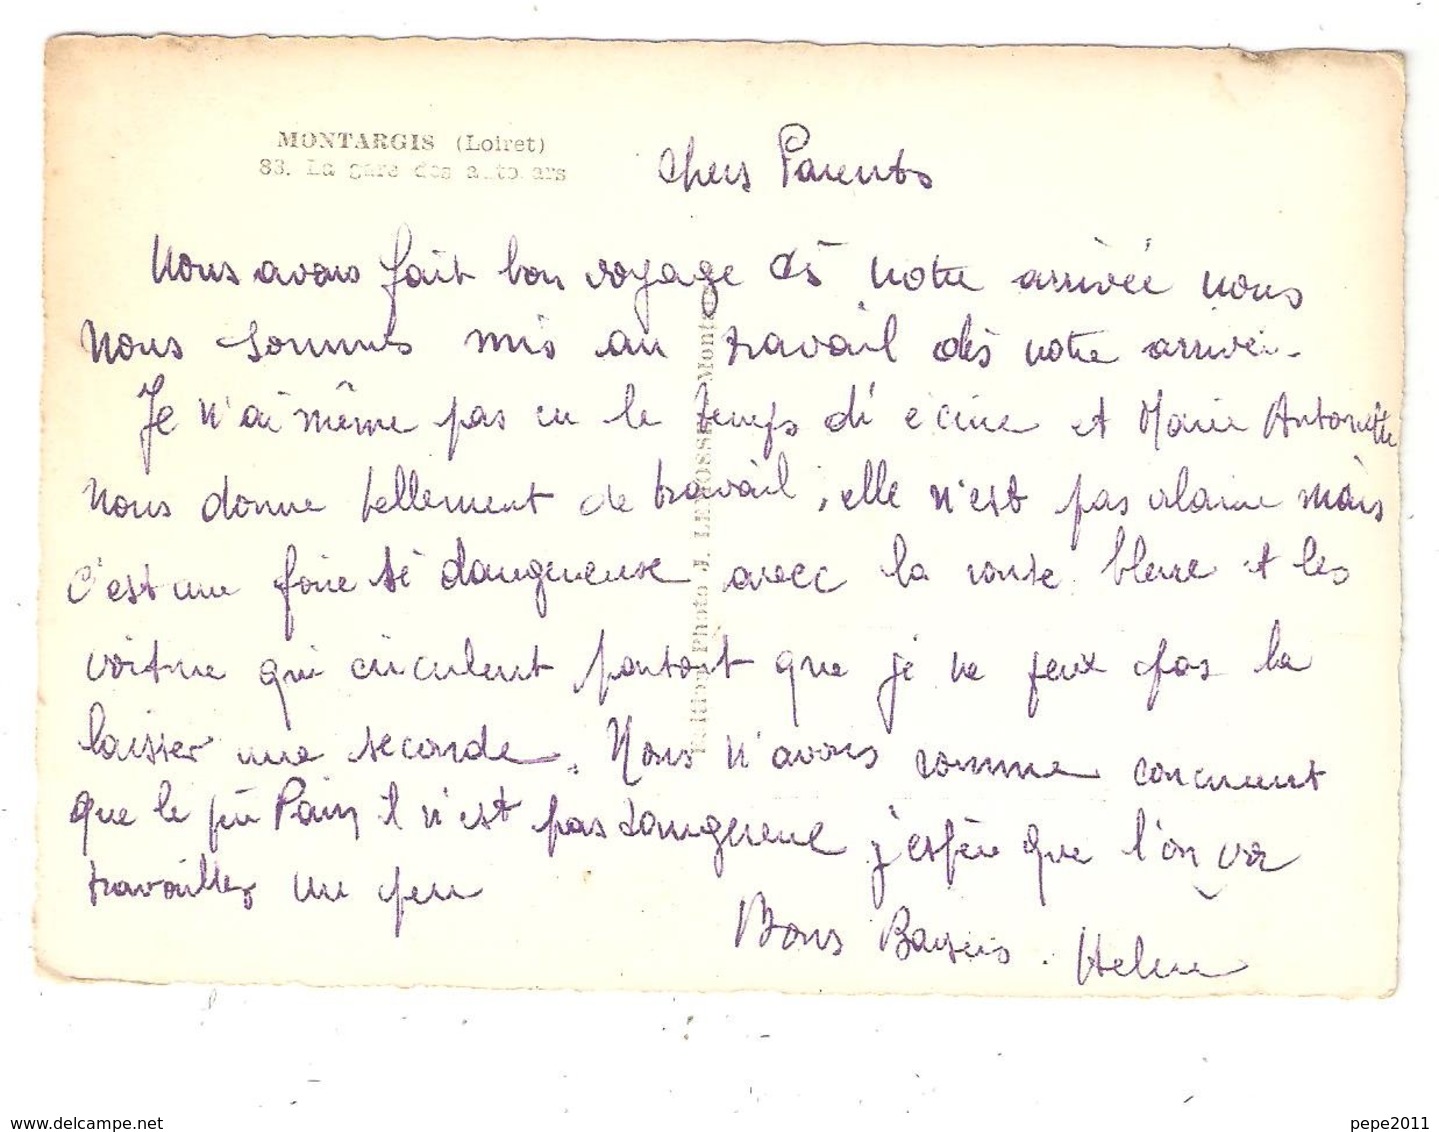 MONTARGIS (Loiret)
83. La gare des autocars
Chers Parents
Nous avons fait bon voyage dès notre arrivée nous
nous sommes mis au travail dès notre arrivée.
Je n'ai même pas eu le temps d'écrire et Marie Antoinette
nous donne tellement de travail, elle n'est pas vilaine mais
c'est une foire si dangereuse avec la route bleue et les
voiture qui circulent partout que je ne peux pas la
laisser une seconde. Nous n'avons comme concurrent
que le père Pain, il n'est pas dangereux j'espère que l'on va
travailler un peu
Bons Baisers. Helene
Edition Photo J. LEMOSSE Montar
www.delcampe.net
pepe2011